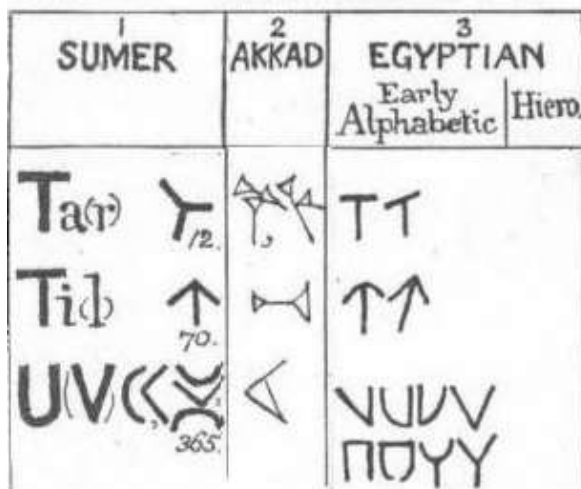 1 2 3
SUMER AKKAD EGYPTIAN
Early
Alphabetic Hiero.
Ta(r) 12. , T T
Ti(l) 70.
U(V) , 365. V U U V
Π Y Y